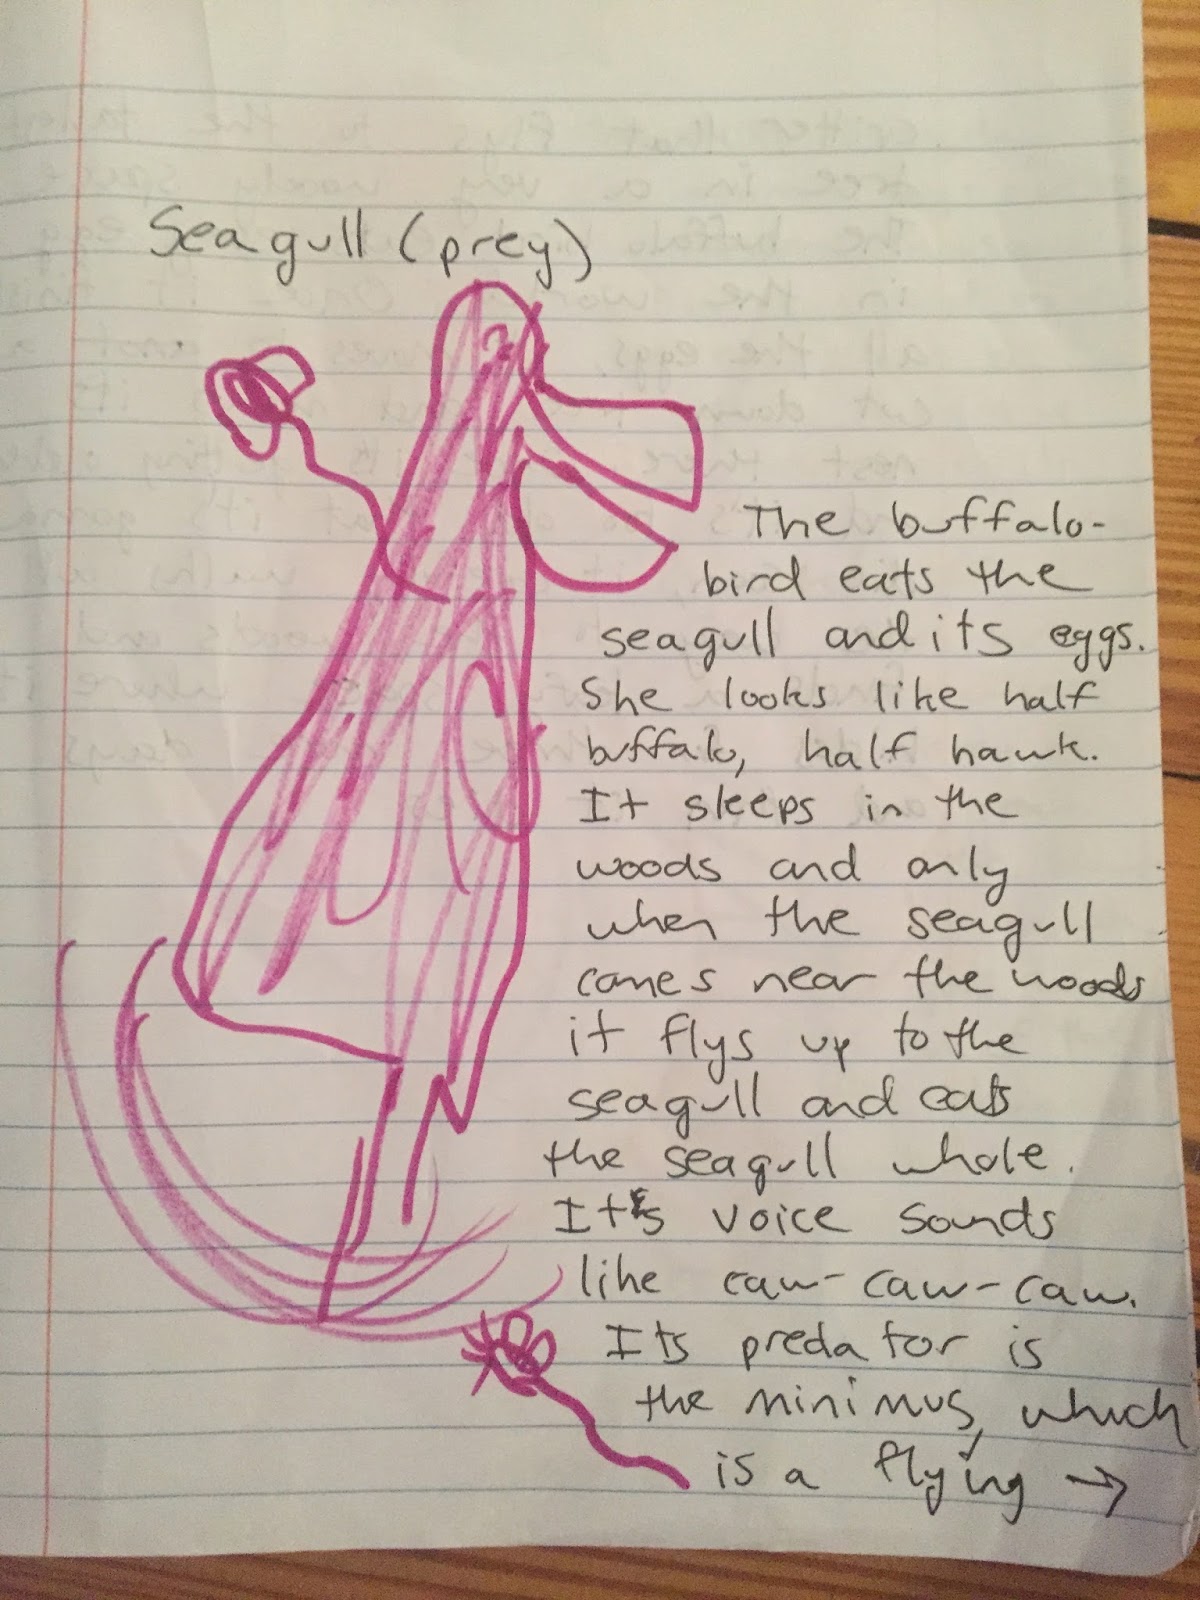 Seagull (prey)
The buffalo-
bird eats the
seagull and its eggs.
She looks like half
buffalo, half hawk.
It sleeps in the
woods and only
when the seagull
comes near the woods
it flys up to the
seagull and eats
the seagull whole.
It's voice sounds
like caw-caw-caw.
Its predator is
the minimus, which
is a flying →